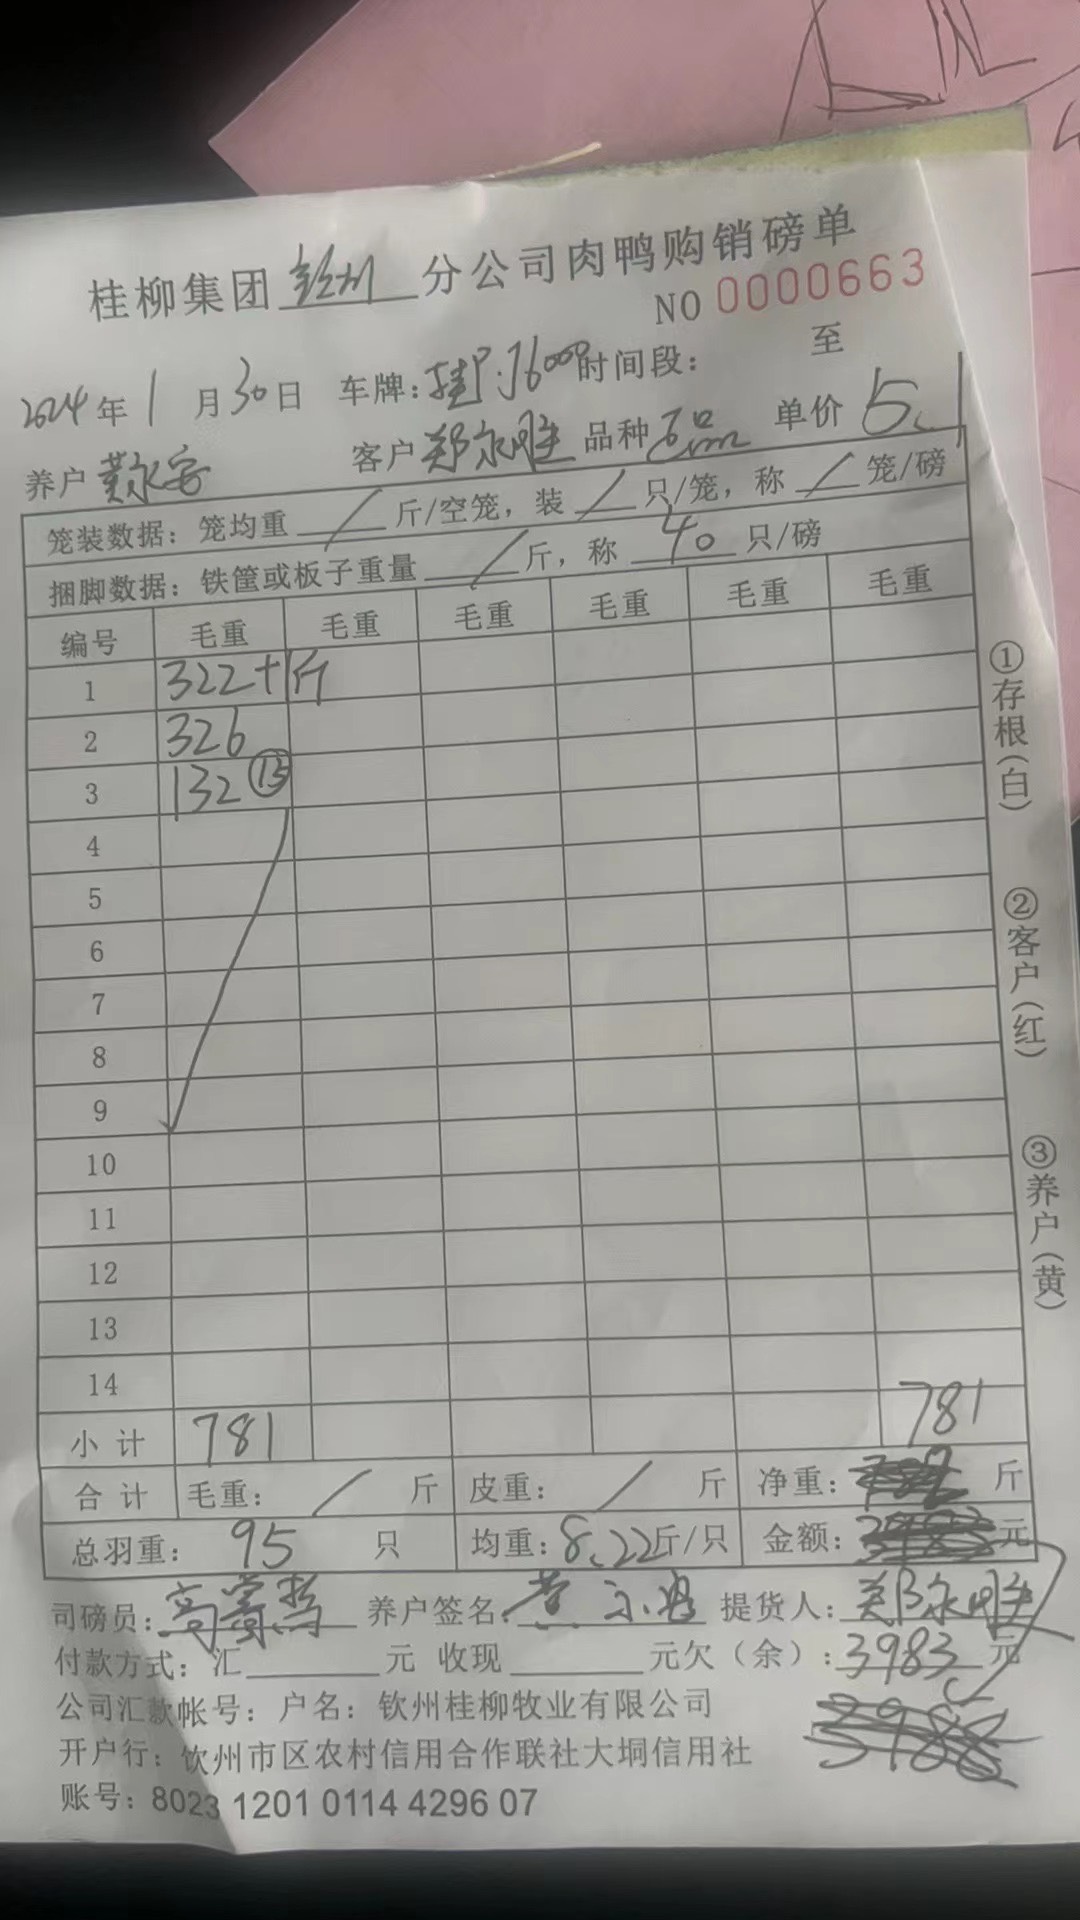 桂柳集团钦州分公司肉鸭购销磅单
NO 0000663
2024年1月30日 车牌: 桂P·J6000 时间段: 至
养户 黄永安 客户 郑永胜 品种 正品 单价 5.1
笼装数据: 笼均重 / 斤/空笼, 装 / 只/笼, 称 / 笼/磅
捆脚数据: 铁筐或板子重量 / 斤, 称 40 只/磅
编号 毛重 毛重 毛重 毛重 毛重 毛重
1 322+1斤
2 326
3 132 ⑮
4
5
6
7
8
9
10
11
12
13
14
小计 781 781
合计 毛重: / 斤 皮重: / 斤 净重: 斤
总羽重: 95 只 均重: 8.22斤/只 金额: 元
司磅员: 养户签名: 黄永安 提货人: 郑永胜
付款方式: 汇 元 收现 元欠(余): 3983 元
3988
公司汇款帐号: 户名: 钦州桂柳牧业有限公司
开户行: 钦州市区农村信用合作联社大垌信用社
账号: 8023 1201 0114 4296 07
①存根(白)
②客户(红)
③养户(黄)